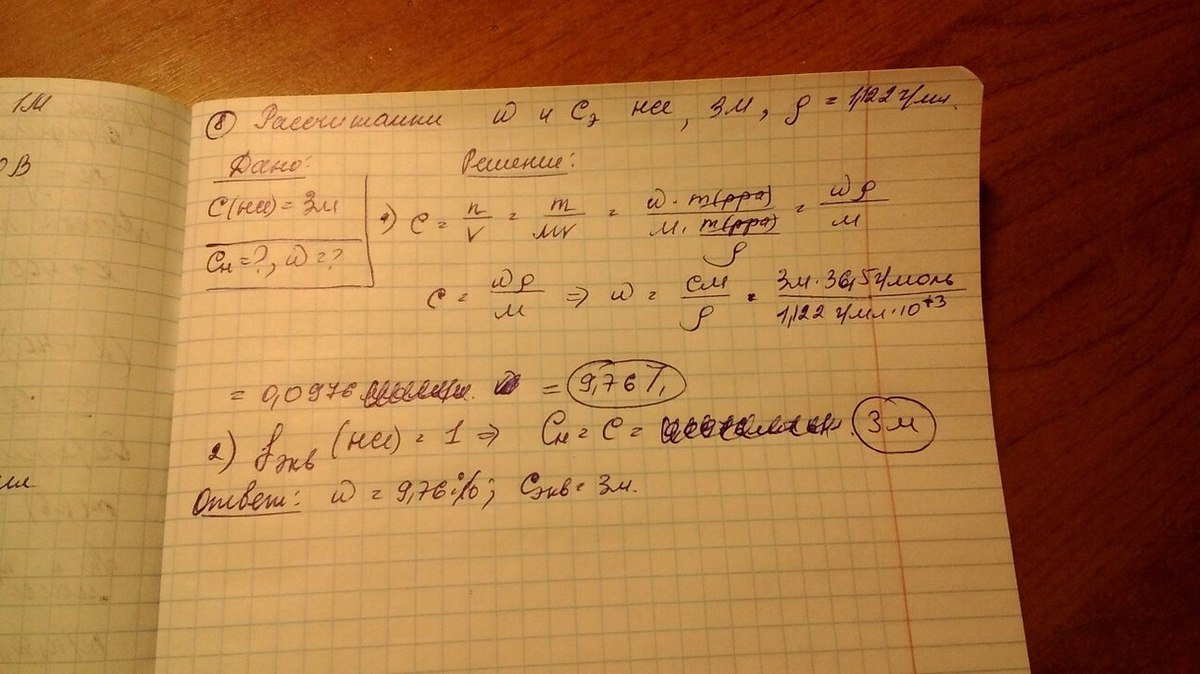 1М
ОВ
⑧ Рассчитать ω и Cэ HCl, 3М, ρ = 1,122 г/мл.
Дано: Решение:
C(HCl) = 3М
Cн = ?, ω = ?
1) C = n/V = m/MV = ω · m(р-ра)/(M · m(р-ра)/ρ) = ωρ/M
C = ωρ/M ⇒ ω = CM/ρ = 3М · 36,5 г/моль / 1,122 г/мл · 10⁺³
= 0,0976 = 9,76%
2) fэкв (HCl) = 1 ⇒ Cн = C = 3М
Ответ: ω = 9,76%; Cэкв = 3М.